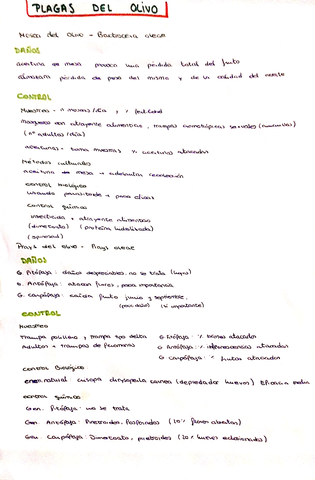 PLAGAS DEL OLIVO
Mosca del olivo - Bactrocera oleae
DAÑOS
aceituna de mesa provoca una pérdida total del fruto
almazara pérdida de peso del mismo y de la calidad del aceite
CONTROL
Muestreo - nº moscas/día , % fertilidad
mosquero con atrayente alimenticio, trampas cromotrópicas sexuales (amarillas)
(nº adultos/día)
aceitunas - toma muestras % aceitunas atacadas
Métodos culturales
aceituna de mesa → adelantar recolección
control biológico
parasitoide → poca eficacia
control químico
insecticida + atrayente alimenticio
(dimetoato) (proteína hidrolizada)
(spinosad)
Prays del olivo - Prays oleae
DAÑOS
G. Filófaga: daños despreciables, no se trata
G. Antófaga: atacan flores, poca importancia
G. Carpófaga: caída fruto junio y septiembre,
(sí importante)
CONTROL
Muestreo
Trampa polillero y trampa tipo delta G Filófaga: % brotes atacados
Adultos → trampas de feromonas G Antófaga: % inflorescencias atacadas
G Carpófaga: % frutos atacados
control Biológico
ene natural: crisopa chrysoperla carnea (depredador huevos) Eficacia media
control químico
Gen. Filófaga: no se trata
Gen. Antófaga: Piretroides, fosforados (20% flores abiertas)
Gen. Carpófaga: Dimetoato, piretroides (20% huevos eclosionados)